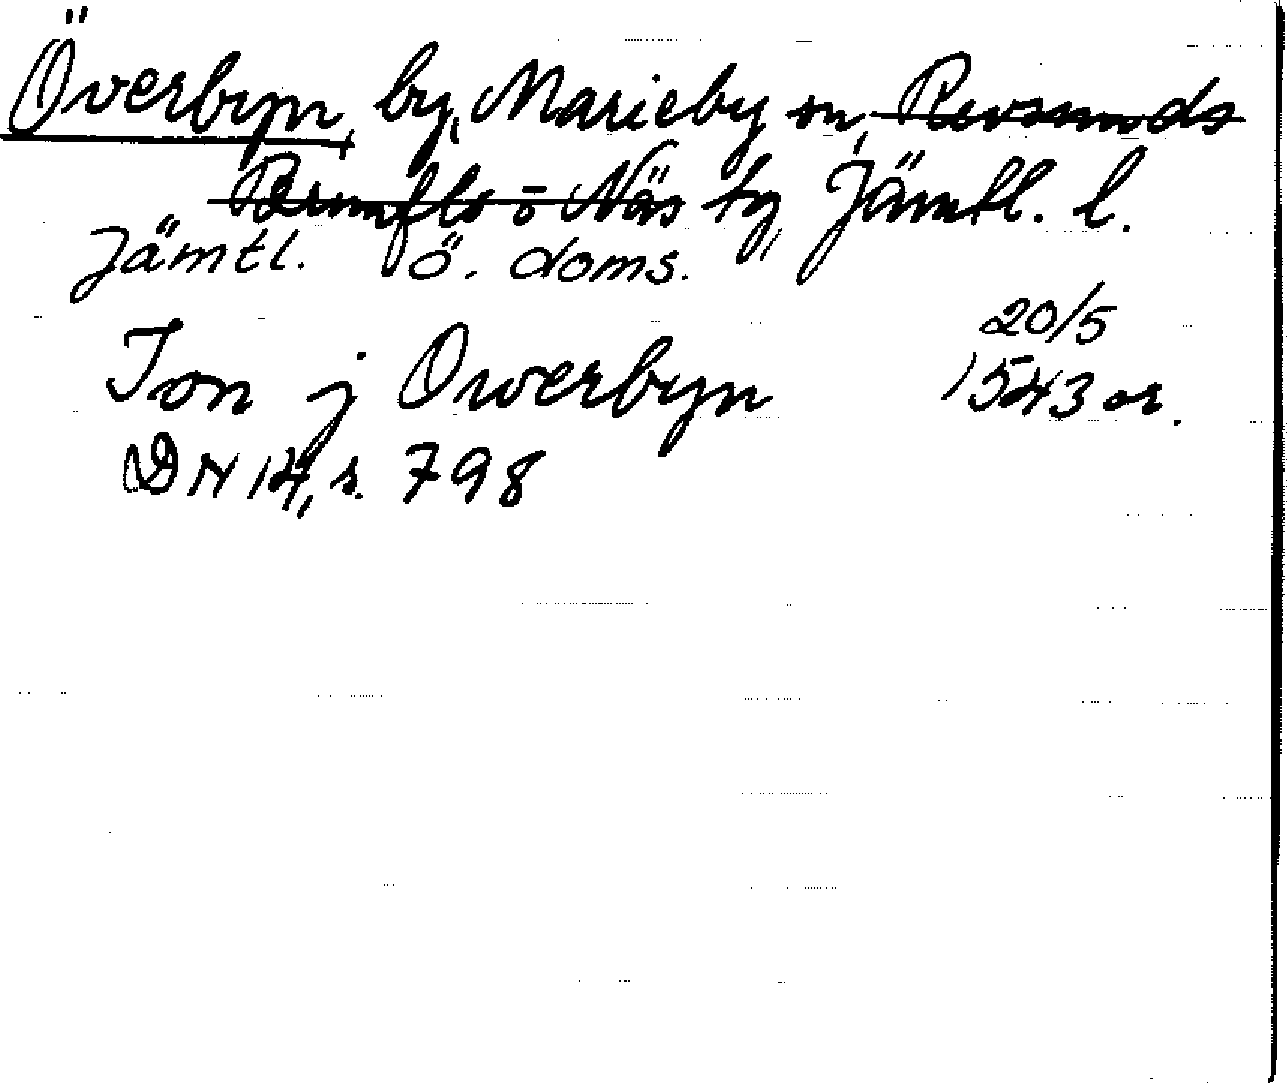 Överbyn, by, Marieby sn, Revsunds
Brunflo o Näs tg, Jämtl. l.
Jämtl. ö. doms.
20/5
Jon j Owerbyn 1543 or.
DN 14, s. 798